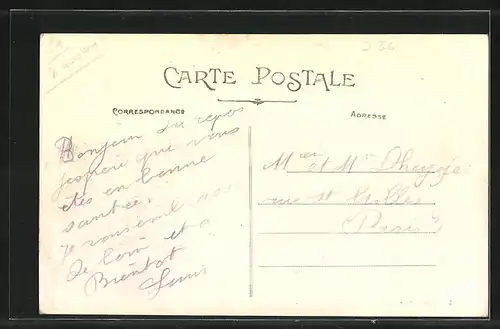 236
CARTE POSTALE
CORRESPONDANCE
ADRESSE
Bonjour du repos
j'espere que vous
etes en bonne
santée.
Je vous
de loin et a
Bientot
Louis
Mme et Mr
rue St Gilles
Paris